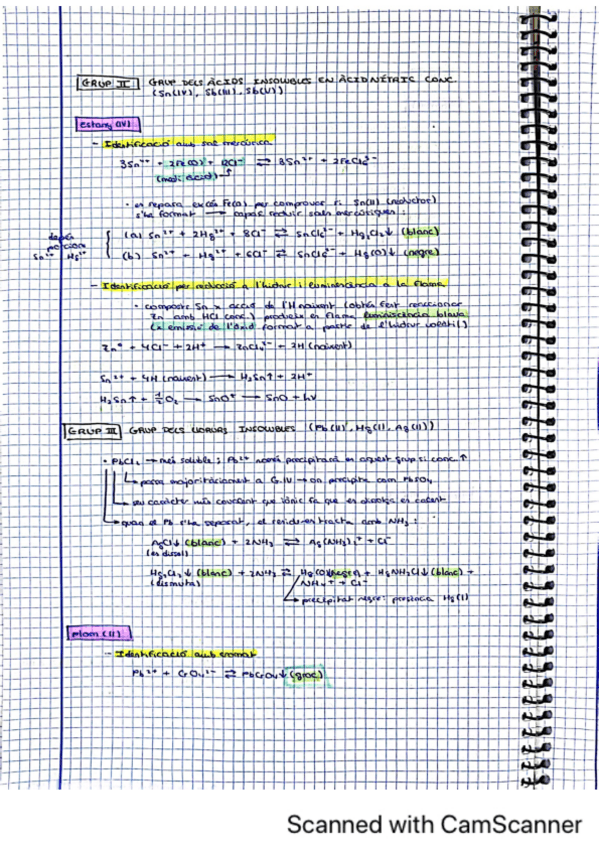 GRUP II GRUP DELS ÀCIDS INSOLUBLES EN ÀCID NÍTRIC CONC.
(Sn(IV), Sb(III), Sb(V))
Estany (IV)
- Identificació amb sal mercúrica
3Sn⁴⁺ + 2Fe(0) + 12Cl⁻ ⇄ 3Sn²⁺ + 2FeCl₆³⁻
(medi àcid)
· es separa excés Fe(0) per comprovar si Sn(II) (reductor)
s'ha format → capaç reduir sals mercúriques:
(a) Sn²⁺ + 2Hg²⁺ + 8Cl⁻ ⇄ SnCl₆²⁻ + Hg₂Cl₂↓ (blanc)
depèn
Sn²⁺ Hg²⁺
(b) Sn²⁺ + Hg²⁺ + 6Cl⁻ ⇄ SnCl₆²⁻ + Hg(0)↓ (negre)
- Identificació per reducció a l'hidrur i luminiscència a la flama
· compost Sn x acció de l'H naixent (obtés fent reaccionar
Zn amb HCl conc.) produeix en flama luminiscència blava
(x emissió de l'òxid format a partir de l'hidrur volàtil)
+ 4Cl⁻ + 2H⁺ → ZnCl₄²⁻ + 2H (naixent)
Sn²⁺ + 4H (naixent) → H₂Sn↑ + 2H⁺
H₂Sn↑ + ½O₂ → SnO* → SnO + hν
GRUP III GRUP DELS CLORURS INSOLUBLES (Pb(II), Hg(I), Ag(I))
· PbCl₂ → més soluble; Pb²⁺ només precipitarà en aquest grup si conc.↑
→ passa majoritàriament a G.IV → on precipita com PbSO₄
→ seu caràcter més covalent que iònic fa que es dissolgui en calent
→ quan el Pb s'ha separat, el residu es tracta amb NH₃:
AgCl↓ (blanc) + 2NH₃ ⇄ Ag(NH₃)₂⁺ + Cl⁻
(es dissol)
Hg₂Cl₂↓ (blanc) + 2NH₃ ⇄ Hg(0)(negre) + HgNH₂Cl↓ (blanc) +
(dismuta) NH₄⁺ + Cl⁻
→ precipitat negre: presència Hg(I)
Plom (II)
- Identificació amb cromat
Pb²⁺ + CrO₄²⁻ ⇄ PbCrO₄↓ (groc)
Scanned with CamScanner